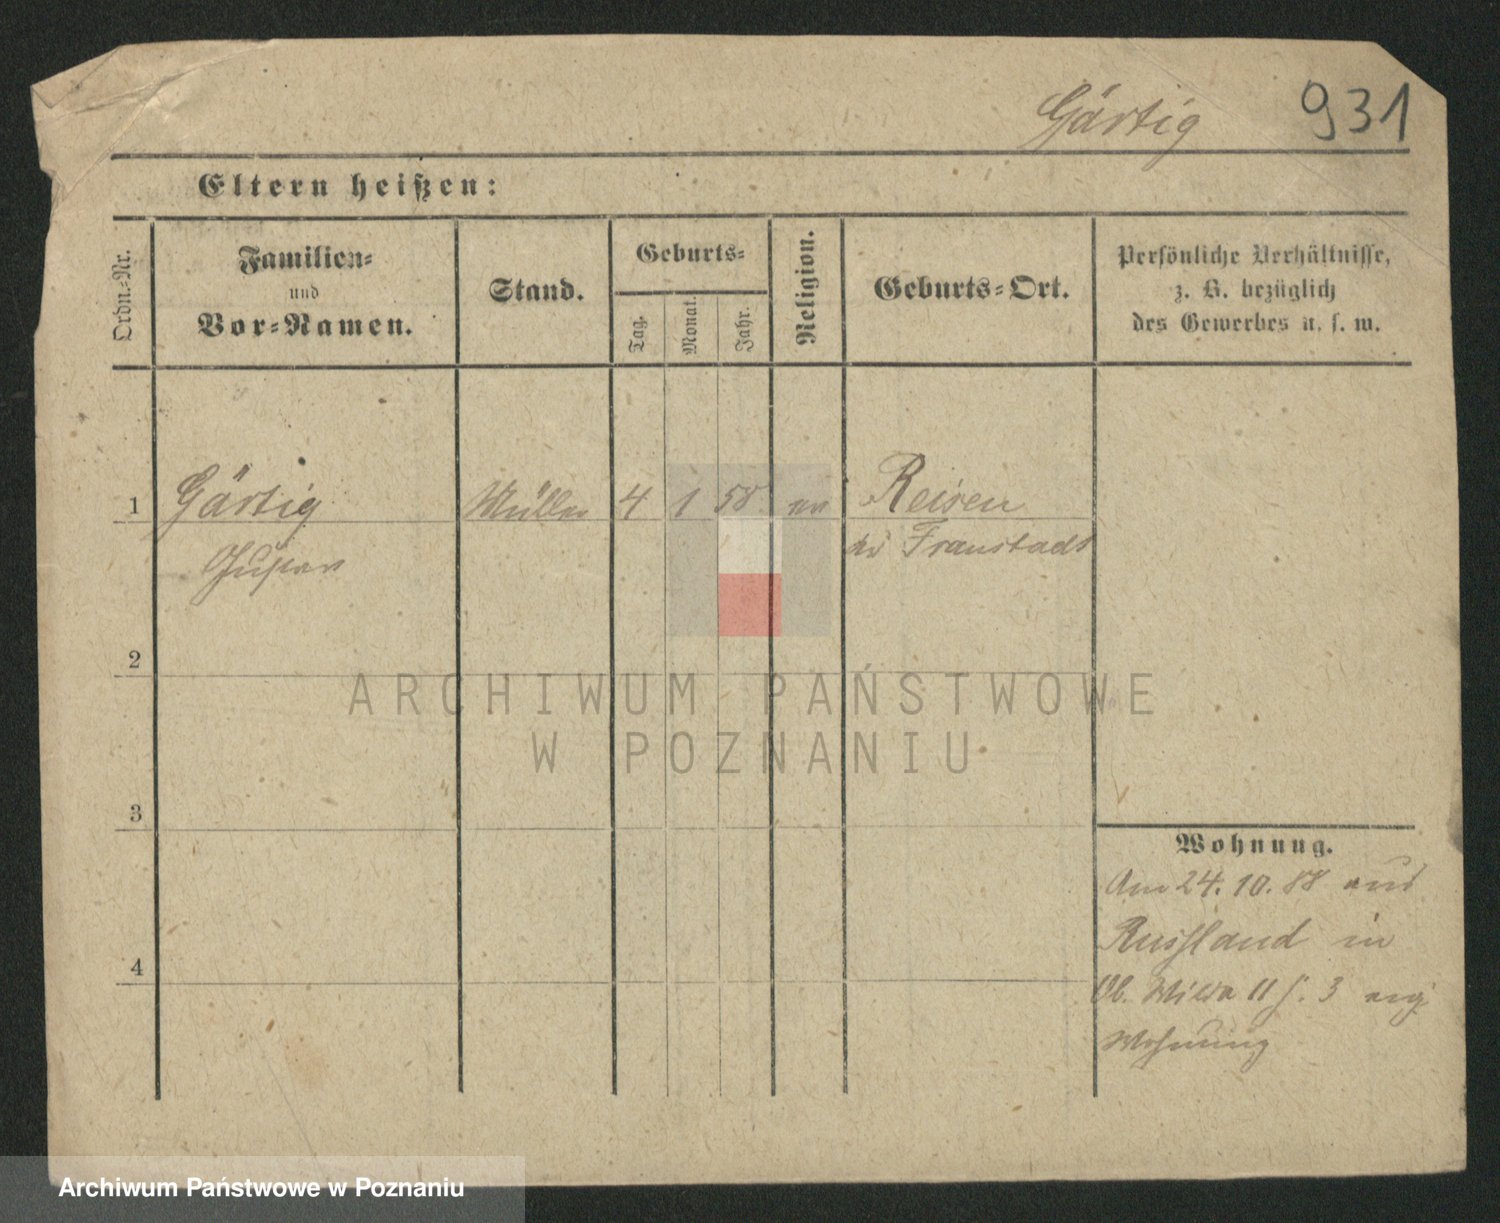 Gärtig 931
Eltern heißen:
Ordn.-Nr.
Familien-
und
Vor-Namen.
Stand.
Geburts-
Tag.
Monat.
Jahr.
Religion.
Geburts-Ort.
Persönliche Verhältnisse,
z. B. bezüglich
des Gewerbes u. s. w.
1 Gärtig Müller 4 1 58 ev Reisen
Gustav Fraustadt
2
3
4
Wohnung.
Am 24. 10. 88 aus
Russland in
Ob. Wilda 11 3
Wohnung
ARCHIWUM PAŃSTWOWE
W POZNANIU
Archiwum Państwowe w Poznaniu